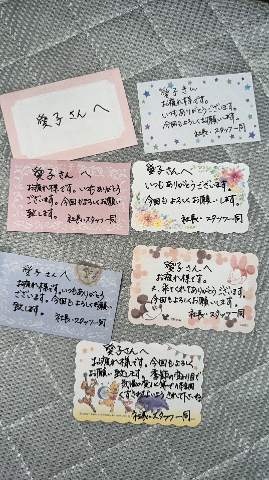 愛子さんへ
愛子さん
お疲れ様です。
いつもありがとうございます。
今回もよろしくお願いします。
社長・スタッフ一同
愛子さんへ
お疲れ様です。いつもありがとう
ございます。今回もよろしくお願い
致します。
社長・スタッフ一同
愛子さんへ
いつもありがとうございます。
今回もよろしくお願いします。
社長・スタッフ一同
愛子さんへ
お疲れ様です。いつもありがとう
ございます。今回もよろしくお願い
致します。
社長・スタッフ一同
愛子さんへ
お疲れ様です。
来てくれてありがとうございます。
今回もよろしくお願いします。
社長・スタッフ一同
愛子さんへ
お疲れ様です。今回もよろしく
お願い致します。季節の変わり目で
気温の変化
くずさないようにされて下さいね
社長・スタッフ一同